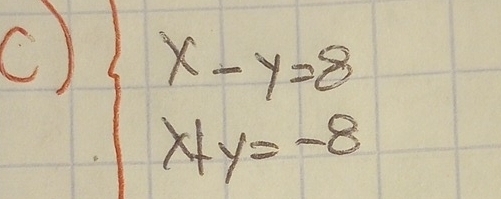 c) { x - y = 8
x + y = -8